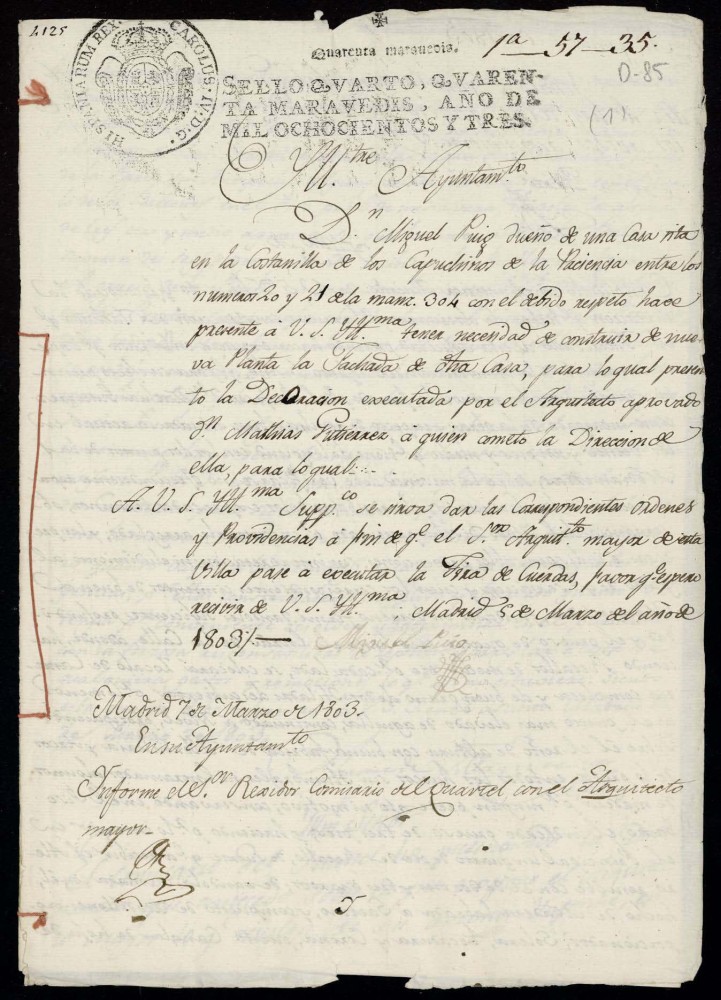 1.125
HISPANIARUM REX. CAROLUS. IV. D. G.
Quarenta maravedis.
1ª—57—35.
0-85
SELLO QVARTO, QVAREN-
TA MARAVEDIS, AÑO DE
MIL OCHOCIENTOS Y TRES.
(1)
Yll.tre Ayuntam.to
D.n Miguel Puig dueño de una Casa sita
en la Costanilla de los Capuchinos de la Paciencia entre los
numeros 20 y 21 de la manz. 304 con el debido respeto hace
presente á V. S. Yll.ma tener necesidad de construir de nue-
va Planta la Fachada de otra Casa, para lo qual presen-
to la Decoracion executada por el Arquitecto aprovado
D.n Mathias Gutierrez á quien cometo la Direccion de
ella, para lo qual:...
A. V. S. Yll.ma Supp.co se sirva dar las Correspondientes ordenes
y Providencias á fin de q.e el S.or Arquit.to mayor de esta
Villa pase á executar la Tira de Cuerdas, favor q.e espero
recivir de V. S. Yll.ma Madrid 5 de Marzo del año de
1803/—
Miguel Puig
Madrid 7 de Marzo de 1803.
En su Ayuntam.to
Informe el S.or Rexidor Comisario del Quartel con el Arquitecto
mayor—